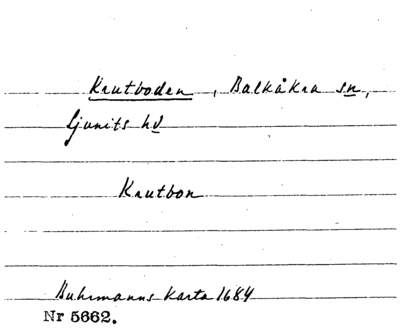 Krutboden, Balkåkra sn,
Ljunits hd
Krutbon
Buhrmanns karta 1684
Nr 5662.